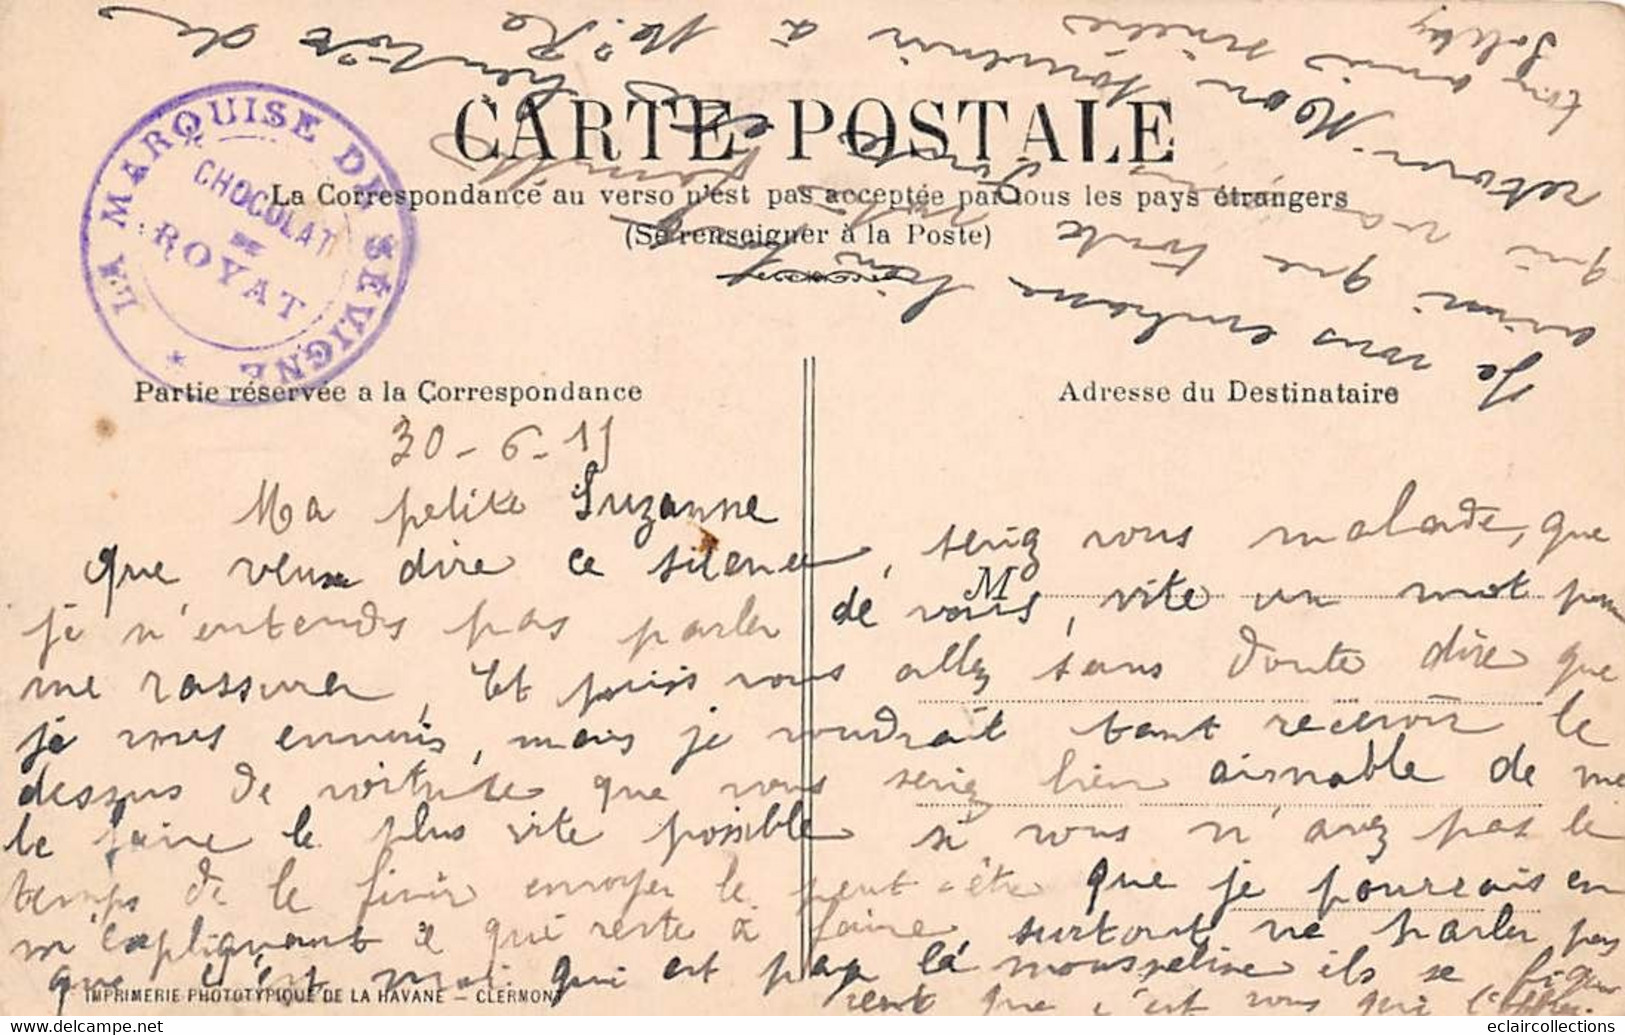 CARTE POSTALE
La Correspondance au verso n'est pas acceptée par tous les pays étrangers
(Se renseigner à la Poste)
LA MARQUISE DE SÉVIGNÉ
CHOCOLAT
DE
ROYAT
Partie réservée a la Correspondance
Adresse du Destinataire
30-6-11
Ma petite Suzanne
que veux dire ce silence, seriez vous malade, que
je n'entends pas parler de vous, vite un mot pour
M
me rassurer, Et puis vous allez sans doute dire que
je vous ennuis, mais je voudrait tant recevoir le
dessus de voiture que vous seriez bien aimable de me
le faire le plus vite possible si vous n'avez pas le
temps de le finir envoyer le peut-être que je pourrais en
m'expliquant ce qui reste à faire, surtout ne parler pas
que c'est moi qui est payer la mousseline ils se figu
rent que c'est vous qui l'offrez.
Je vous embrasse bien
ainsi que toute votre famille
qui va
retour. Mon souvenir à
amis
bientôt de
IMPRIMERIE PHOTOTYPIQUE DE LA HAVANE – CLERMONT
eclaircollections.com